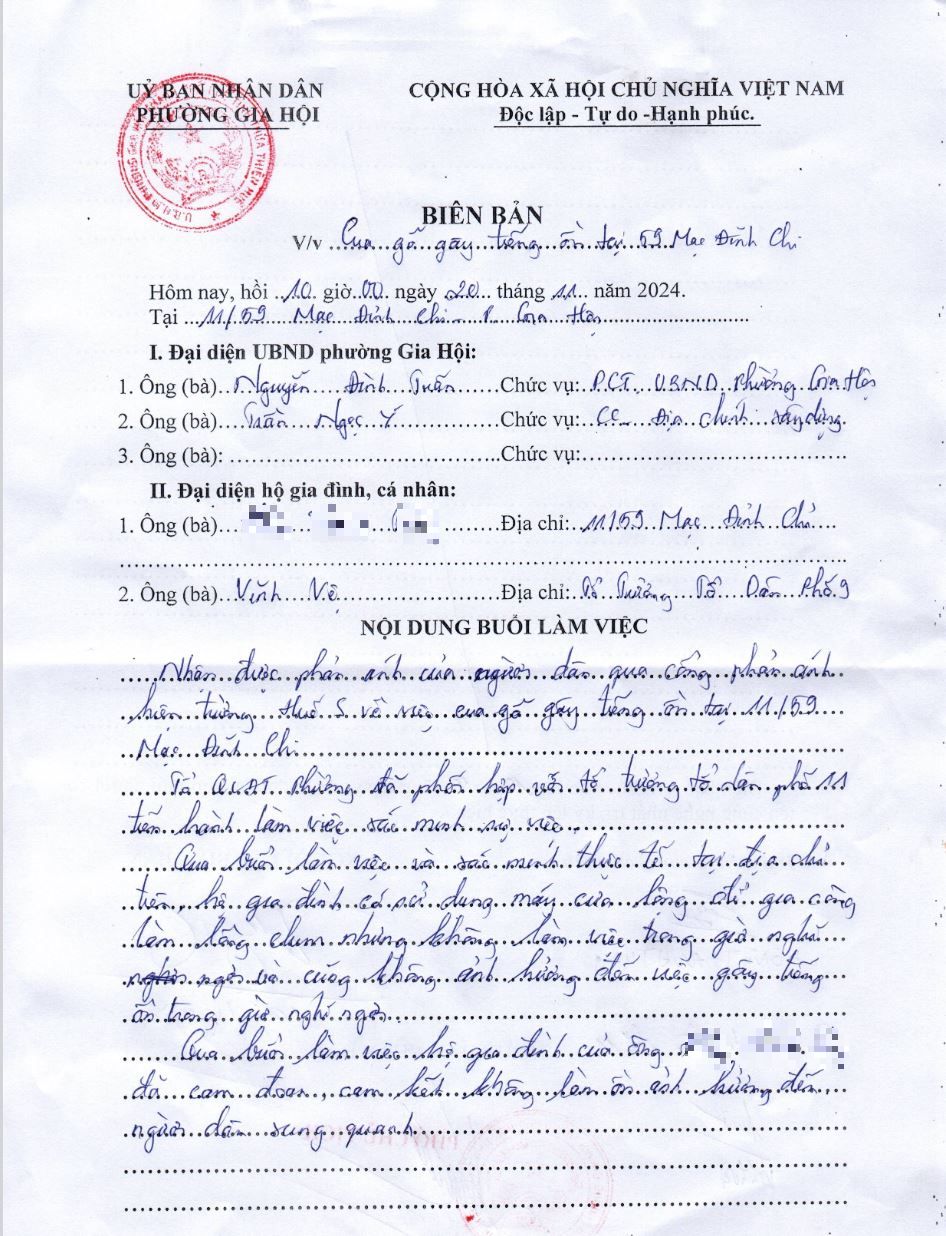 UỶ BAN NHÂN DÂN
PHƯỜNG GIA HỘI
CỘNG HÒA XÃ HỘI CHỦ NGHĨA VIỆT NAM
Độc lập - Tự do -Hạnh phúc.
BIÊN BẢN
V/v Cưa gỗ gây tiếng ồn tại 59 Mạc Đĩnh Chi
Hôm nay, hồi 10 giờ 00 ngày 20 tháng 11 năm 2024.
Tại 11/59 Mạc Đĩnh Chi P. Gia Hội
I. Đại diện UBND phường Gia Hội:
1. Ông (bà) Nguyễn Đình Tuấn Chức vụ: P.CT. UBND phường Gia Hội
2. Ông (bà) Trần Ngọc Ý Chức vụ: CC Địa chính xây dựng.
3. Ông (bà): Chức vụ:
II. Đại diện hộ gia đình, cá nhân:
1. Ông (bà) Địa chỉ: 11/59 Mạc Đĩnh Chi
2. Ông (bà) Vĩnh Vệ Địa chỉ: Tổ Trưởng Tổ Dân Phố 9
NỘI DUNG BUỔI LÀM VIỆC
Nhận được phản ánh của người dân qua cổng phản ánh
hiện trường Huế S về việc cưa gỗ gây tiếng ồn tại 11/59
Mạc Đĩnh Chi
Tổ QLĐT Phường đã phối hợp với tổ trưởng tổ dân phố 11
tiến hành làm việc xác minh sự việc.
Qua buổi làm việc và xác minh thực tế tại địa chỉ
trên, hộ gia đình có sử dụng máy cưa lồng để gia công
làm lồng chim nhưng không làm việc trong giờ nghỉ
ngơi và cũng không ảnh hưởng đến việc gây tiếng
ồn trong giờ nghỉ ngơi.
Qua buổi làm việc hộ gia đình của ông
đã cam đoan, cam kết không làm ồn ảnh hưởng đến
người dân xung quanh.